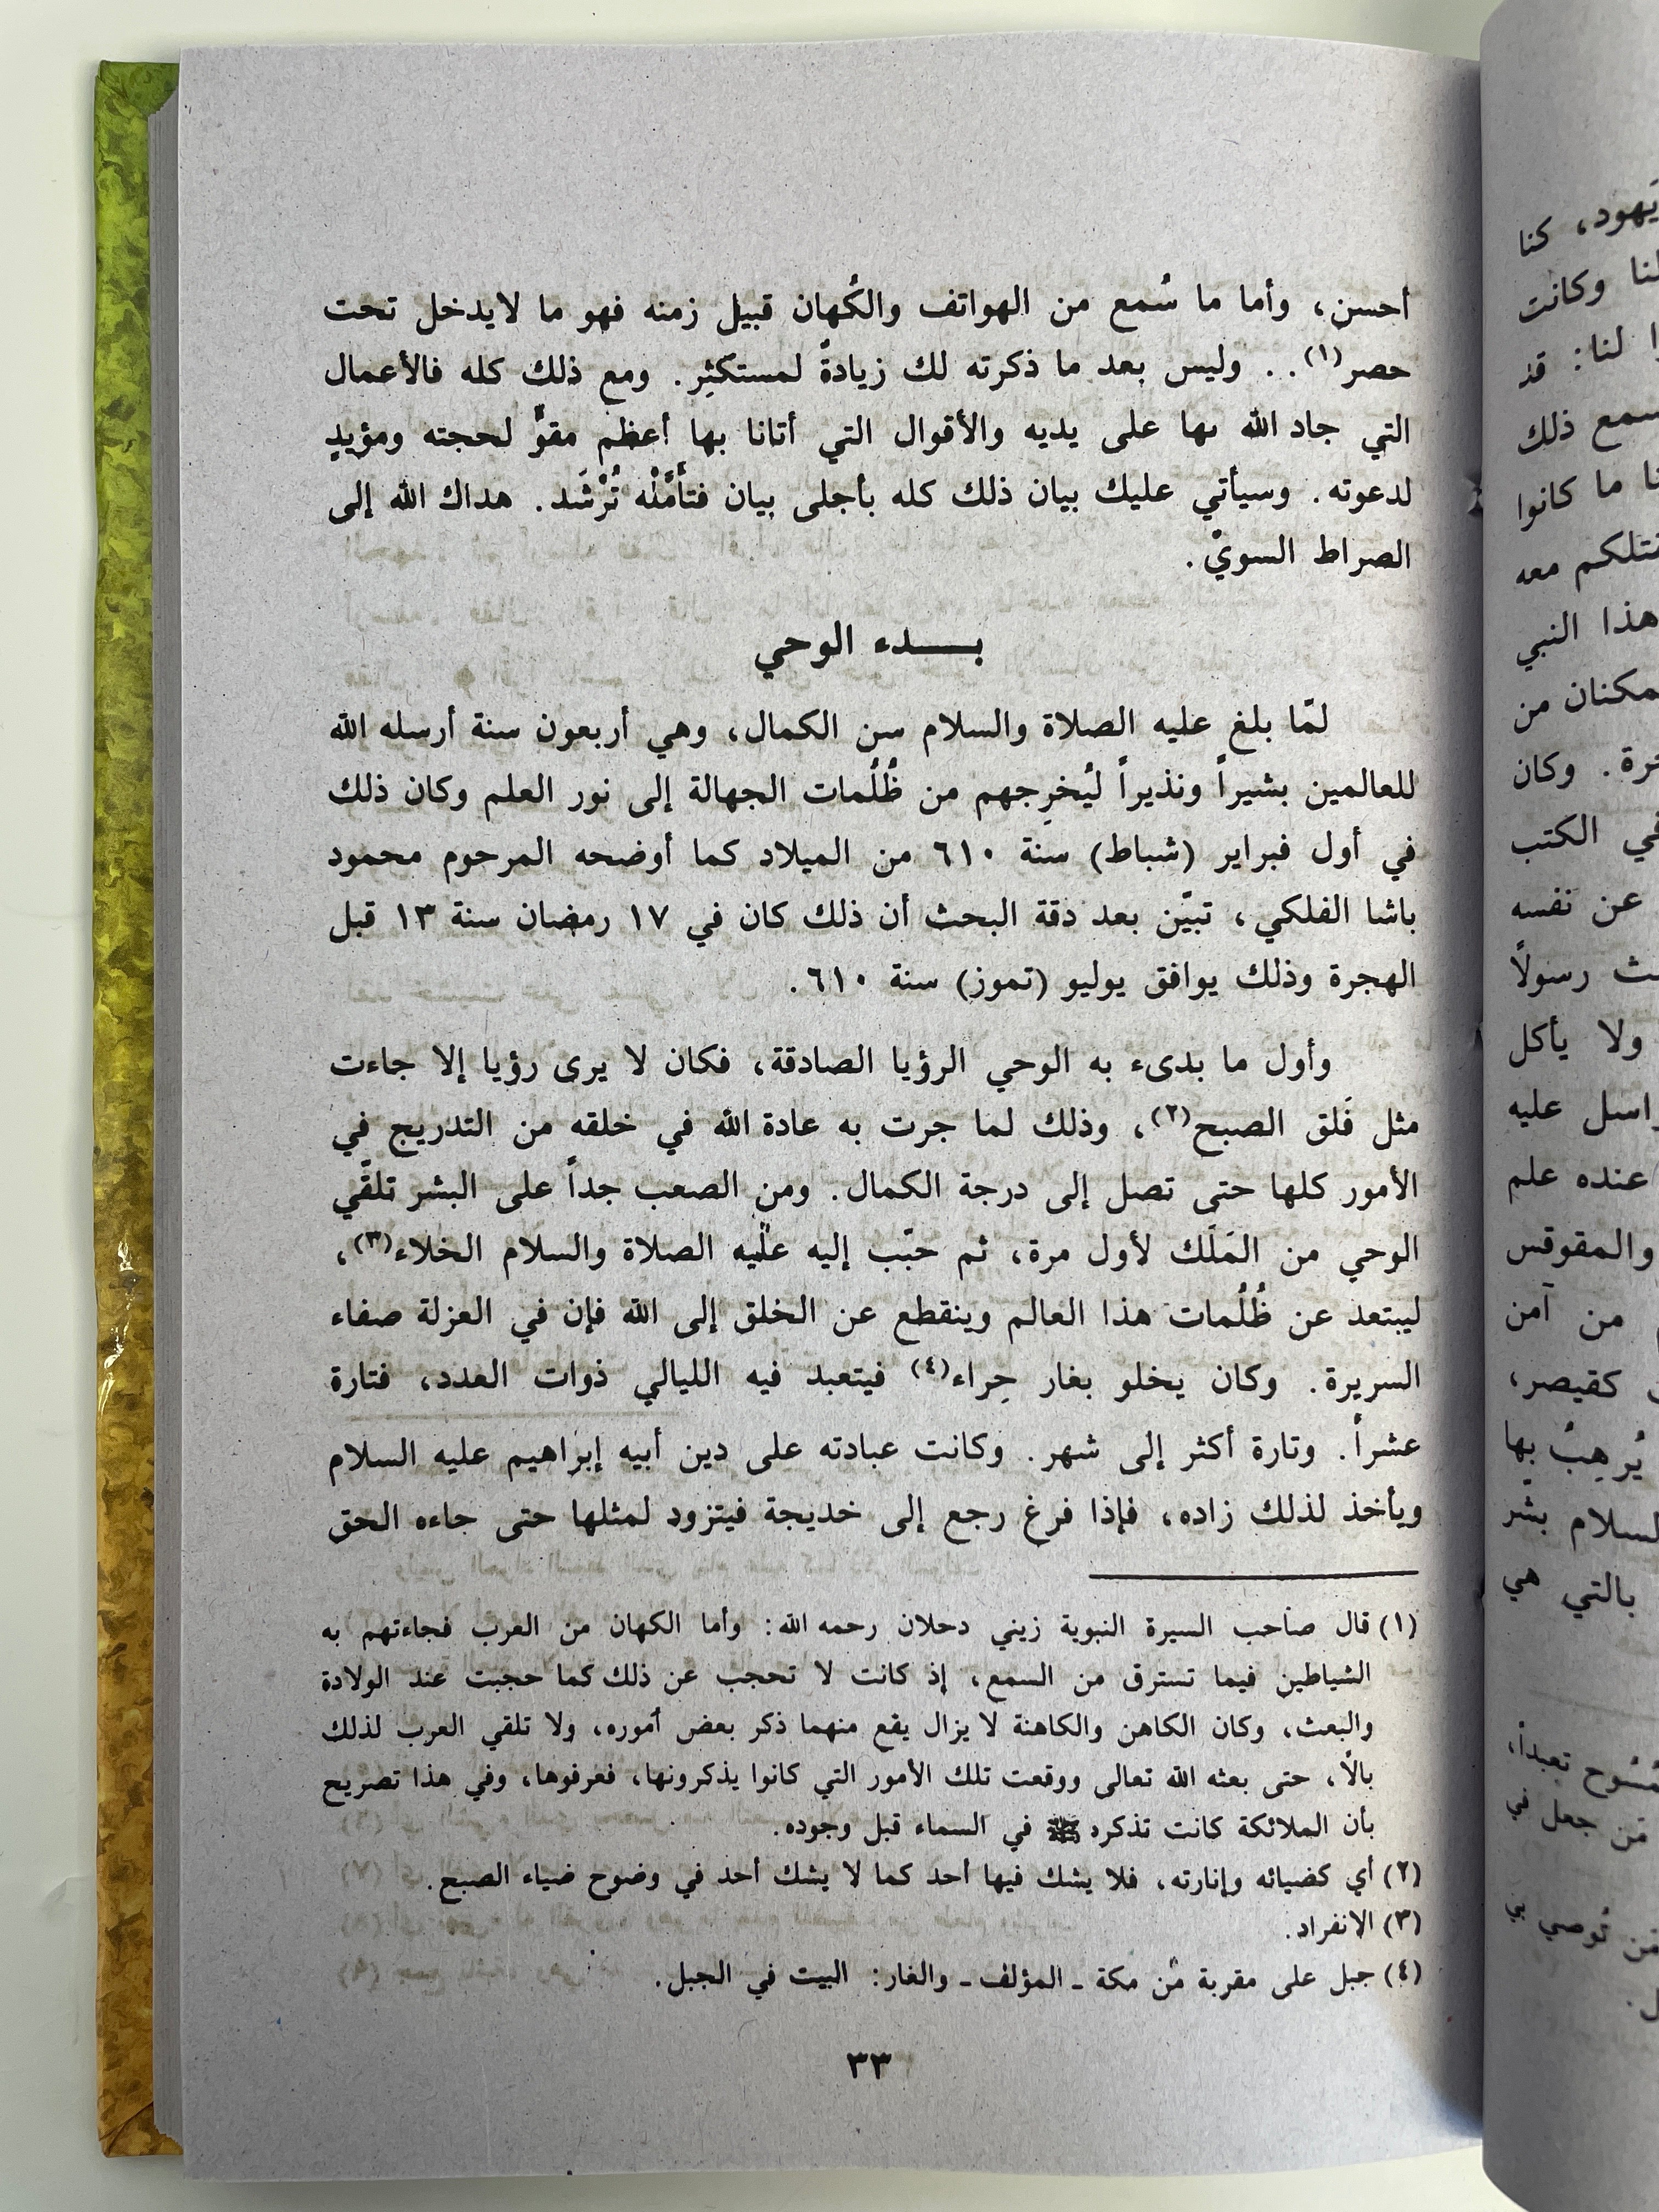 أحسن، وأما ما سُمع من الهواتف والكُهان قبيل زمنه فهو ما لايدخل تحت
حصر(١). . وليس بعد ما ذكرته لك زيادةً لمستكثِر. ومع ذلك كله فالأعمال
التي جاد الله بها على يديه والأقوال التي أتانا بها أعظم مقوٍّ لحجته ومؤيدٍ
لدعوته. وسيأتي عليك بيان ذلك كله بأجلى بيان فتأَمَّلْه تُرْشَد. هداك الله إلى
الصراط السويْ.
بـــدء الوحي
لمّا بلغ عليه الصلاة والسلام سن الكمال، وهي أربعون سنة أرسله الله
للعالمين بشيراً ونذيراً ليُخرِجهم من ظُلُمات الجهالة إلى نور العلم وكان ذلك
في أول فبراير (شباط) سنة ٦١٠ من الميلاد كما أوضحه المرحوم محمود
باشا الفلكي، تبيّن بعد دقة البحث أن ذلك كان في ١٧ رمضان سنة ١٣ قبل
الهجرة وذلك يوافق يوليو (تموز) سنة ٦١٠.
وأول ما بدىء به الوحي الرؤيا الصادقة، فكان لا يرى رؤيا إلا جاءت
مثل فَلق الصبح(٢)، وذلك لما جرت به عادة الله في خلقه من التدريج في
الأمور كلها حتى تصل إلى درجة الكمال. ومن الصعب جداً على البشر تلقّي
الوحي من المَلَك لأول مرة، ثم حبّب إليه عليه الصلاة والسلام الخلاء(٣)،
ليبتعد عن ظُلُمات هذا العالم وينقطع عن الخلق إلى الله فإن في العزلة صفاء
السريرة. وكان يخلو بغار حِراء(٤) فيتعبد فيه الليالي ذوات العدد، فتارة
عشراً. وتارة أكثر إلى شهر. وكانت عبادته على دين أبيه إبراهيم عليه السلام
ويأخذ لذلك زاده، فإذا فرغ رجع إلى خديجة فيتزود لمثلها حتى جاءه الحق
(١) قال صاحب السيرة النبوية زيني دحلان رحمه الله: وأما الكهان من العرب فجاءتهم به
الشياطين فيما تسترق من السمع، إذ كانت لا تحجب عن ذلك كما حجبت عند الولادة
والبعث، وكان الكاهن والكاهنة لا يزال يقع منهما ذكر بعض أموره، ولا تلقي العرب لذلك
بالاً، حتى بعثه الله تعالى ووقعت تلك الأمور التي كانوا يذكرونها، فعرفوها، وفي هذا تصريح
بأن الملائكة كانت تذكره ﷺ في السماء قبل وجوده.
(٢) أي كضيائه وإنارته، فلا يشك فيها أحد كما لا يشك أحد في وضوح ضياء الصبح.
(٣) الانفراد.
(٤) جبل على مقربة من مكة ـ المؤلف ـ والغار: البيت في الجبل.
٣٣
يهود، كنا
لنا وكانت
لنا: قد
سمع ذلك
نا ما كانوا
نتلكم معه
هذا النبي
مكنان من
وكان
في الكتب
عن نفسه
رسولاً
ولا يأكل
عليه
عنده علم
والمقوقس
من آمن
كقيصر،
يُرهِبُ بها
السلام بشّر
بالتي هي
تعبداً،
من جعل في
من توصي بي